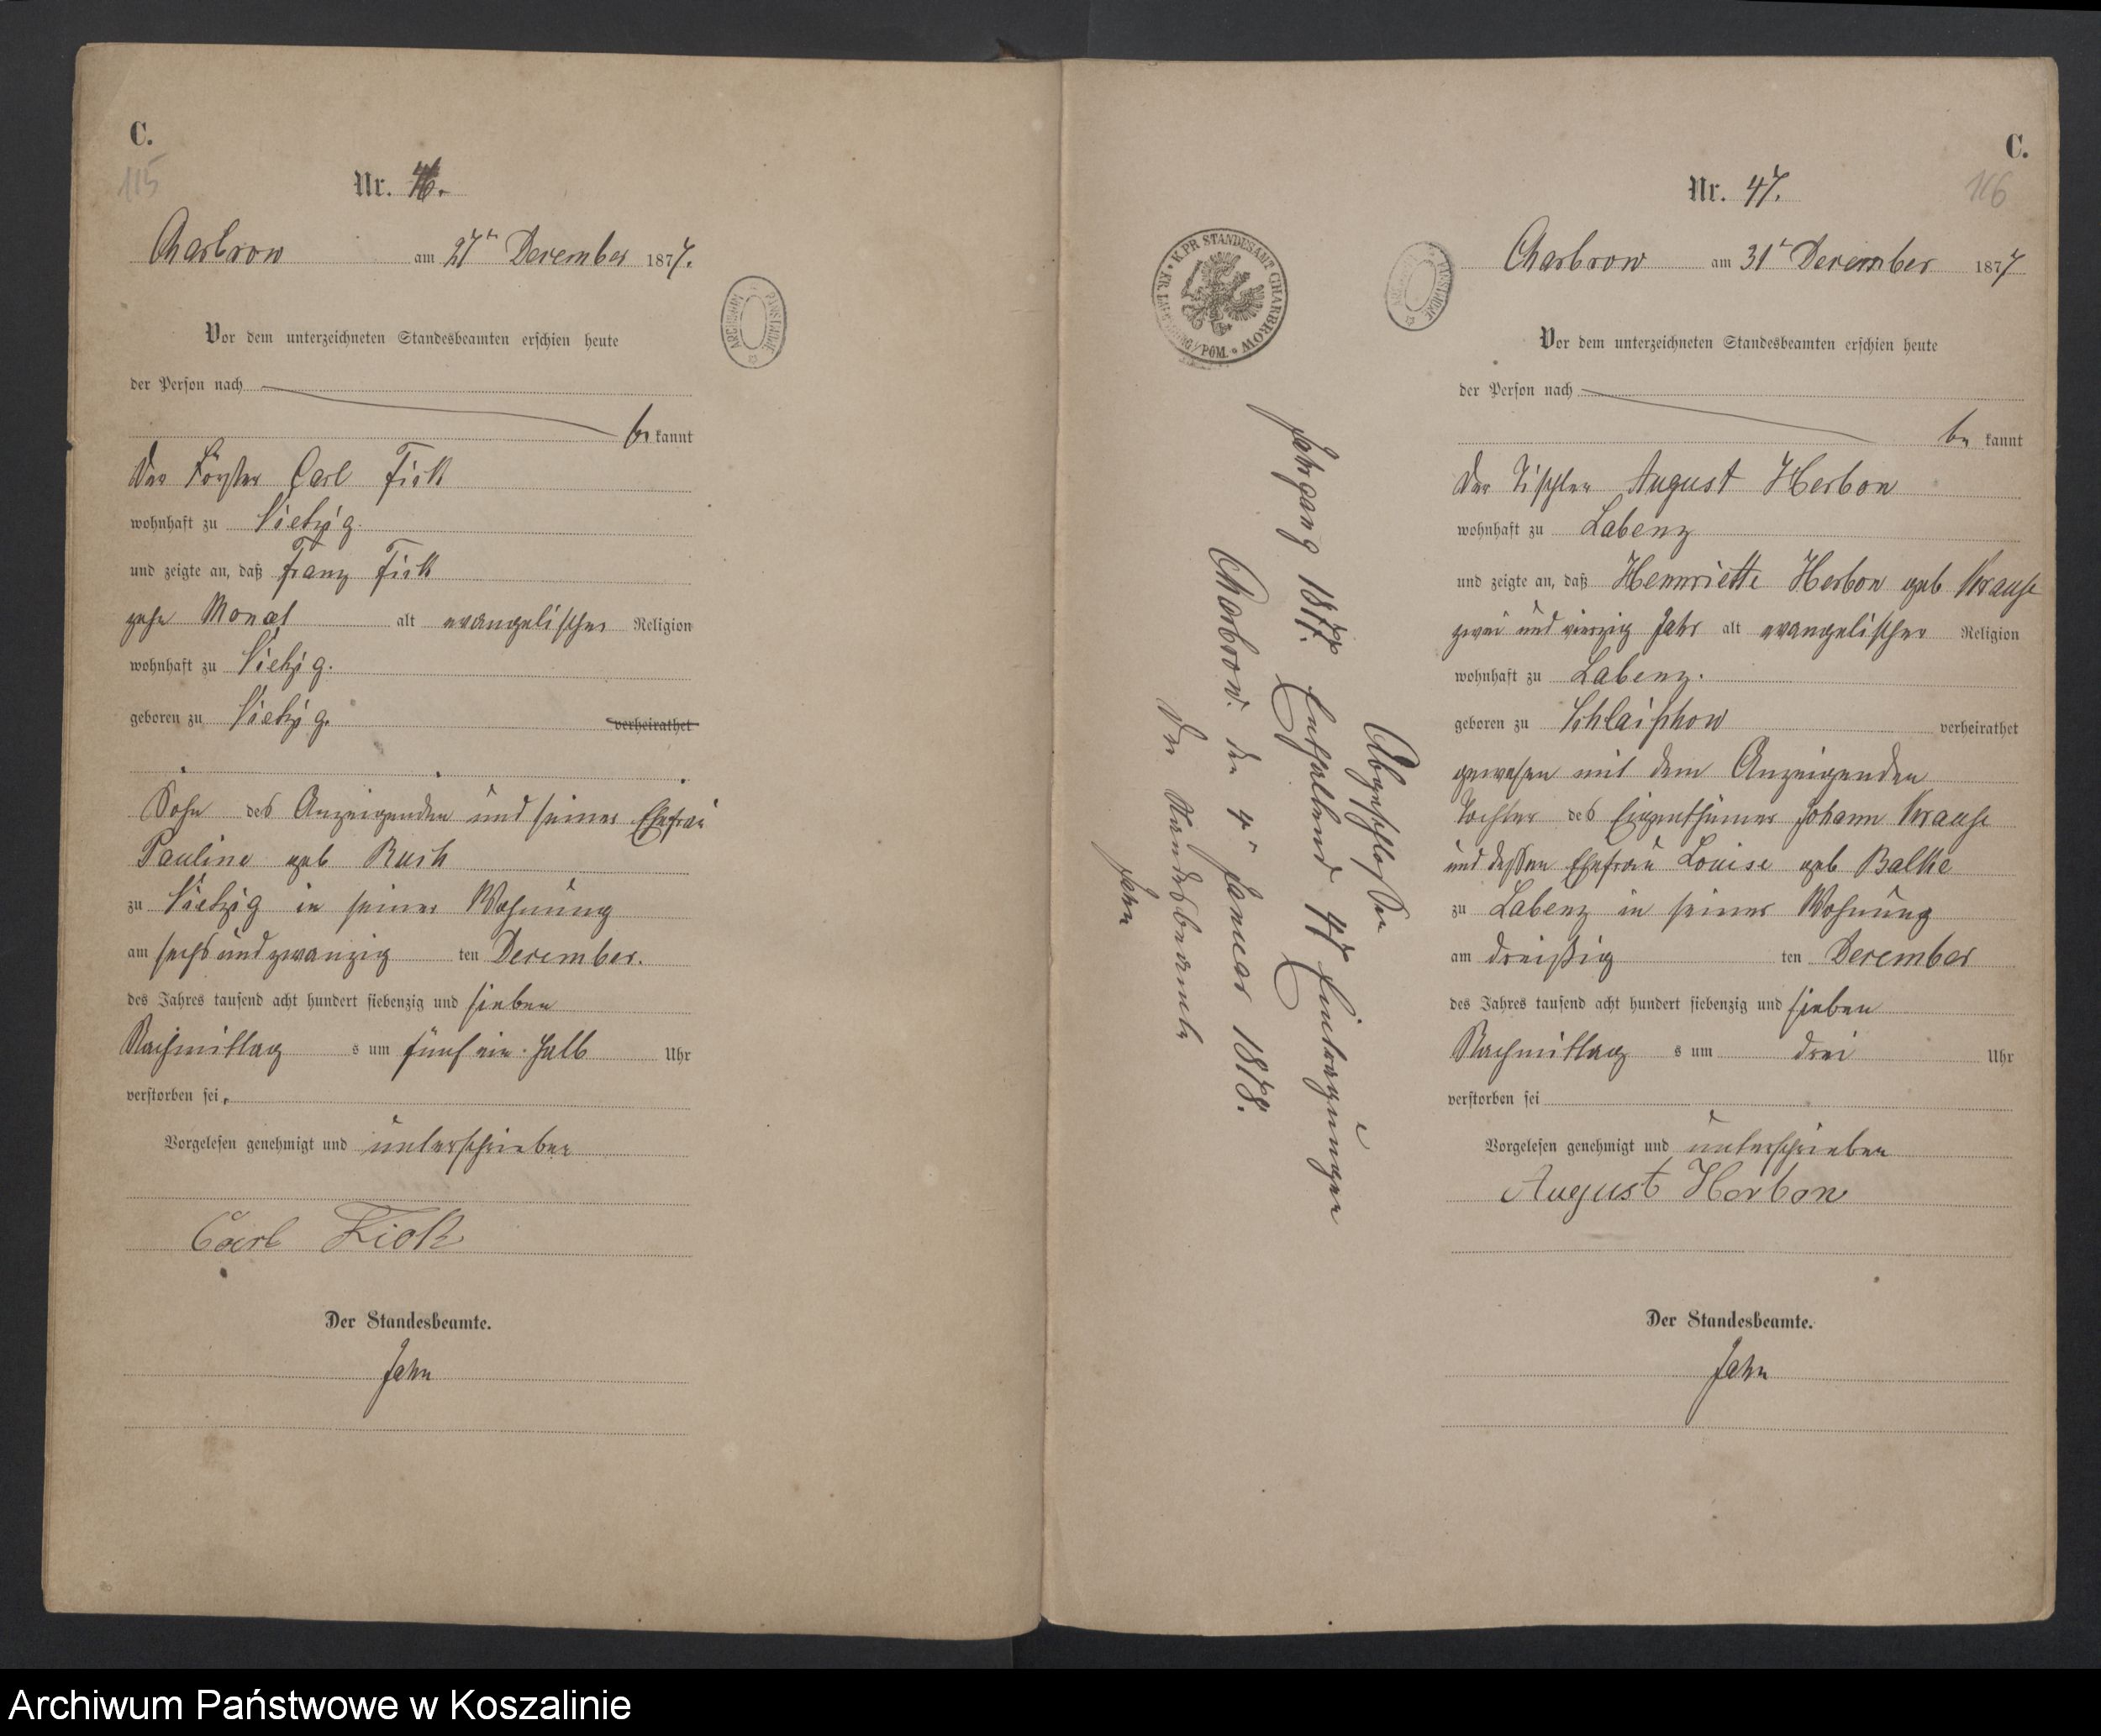 C.
115
Nr. 46.
Charbrow am 27t December 1877.
ARCHIWUM PAŃSTWOWE
Vor dem unterzeichneten Standesbeamten erschien heute
der Person nach
bekannt
Der Förster Carl Fick
wohnhaft zu Vietzig.
und zeigte an, daß Franz Fick
zehn Monat alt evangelischer Religion
wohnhaft zu Vietzig.
geboren zu Vietzig. verheirathet
Sohn des Anzeigenden und seiner Ehefrau
Pauline geb Rusch
zu Vietzig in seiner Wohnung
am sechs und zwanzig ten December.
des Jahres tausend acht hundert siebenzig und sieben
Nachmittag s um fünf ein halb Uhr
verstorben sei.
Vorgelesen genehmigt und unterschrieben
Carl Fick
Der Standesbeamte.
Jahn
C.
116
Nr. 47.
Charbrow am 31t December 1877
K.PR STANDESAMT CHARBROW * KR. LAUENBURG / POM. *
Vor dem unterzeichneten Standesbeamten erschien heute
der Person nach
be kannt
Der Tischler August Herbon
wohnhaft zu Labenz
und zeigte an, daß Hennriette Herbon geb Krause
zwei und vierzig Jahr alt evangelischer Religion
wohnhaft zu Labenz.
geboren zu Schlaischow verheirathet
gewesen mit dem Anzeigenden
Tochter des Eigenthümer Johann Krause
und dessen Ehefrau Louise geb Balke
zu Labenz in seiner Wohnung
am dreißig ten December
des Jahres tausend acht hundert siebenzig und sieben
Nachmittag s um drei Uhr
verstorben sei
Vorgelesen genehmigt und unterschrieben
August Herbon
Der Standesbeamte.
Jahn
Abgeschlossen
Jahrgang 1877. Enthaltend 47 Eintragungen
Charbrow. den 4t Januar 1878.
Der Standesbeamte
Jahn
Archiwum Państwowe w Koszalinie